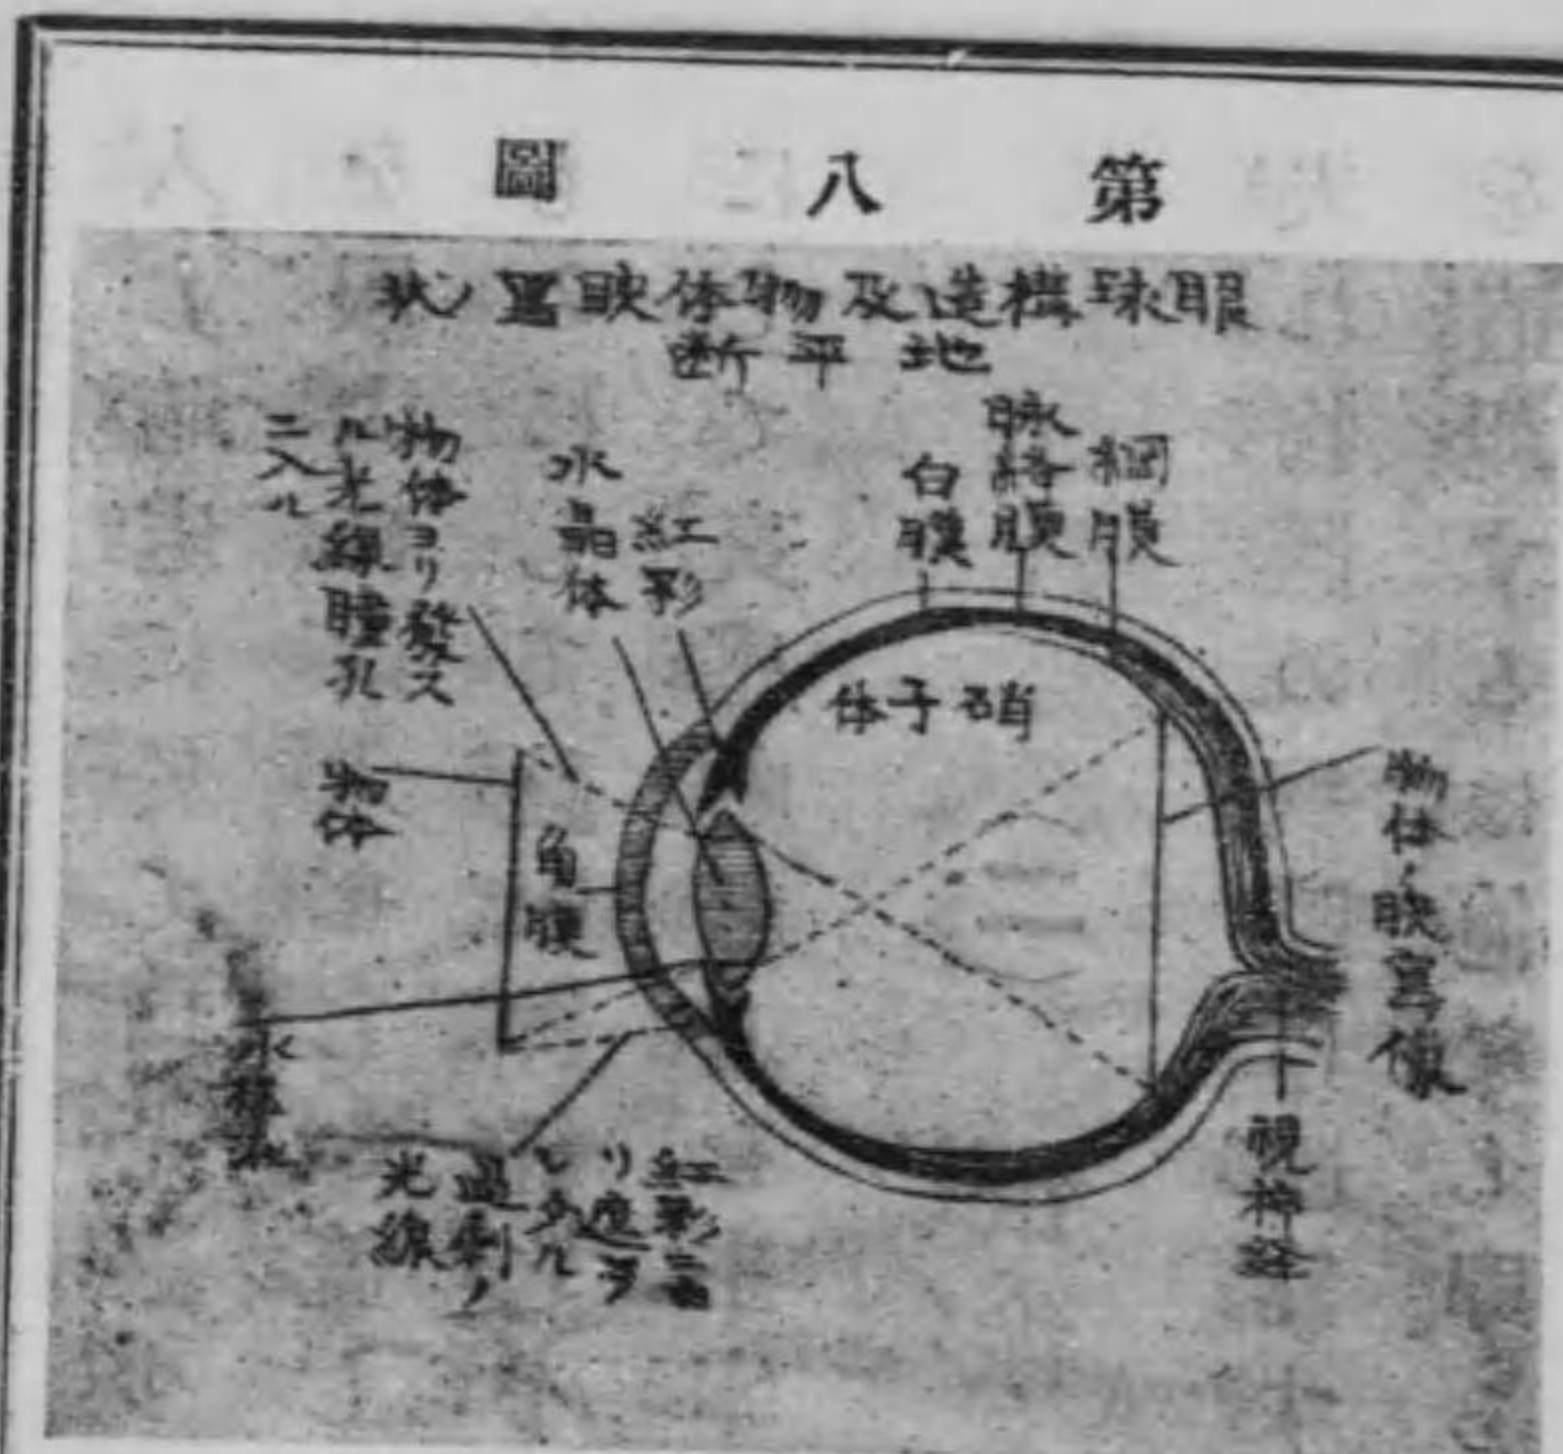 第八圖
眼球構造及物体映寫ノ狀
地平断
網膜
脉絡膜
白膜
紅彩
水晶体
物体ヨリ發ス
ル光線瞳孔
ニ入ル
硝子体
物体
角膜
物体ノ映寫像
水様
視神経
紅彩ニ由
リ遮ヲ
レタル
過剰ノ
光線